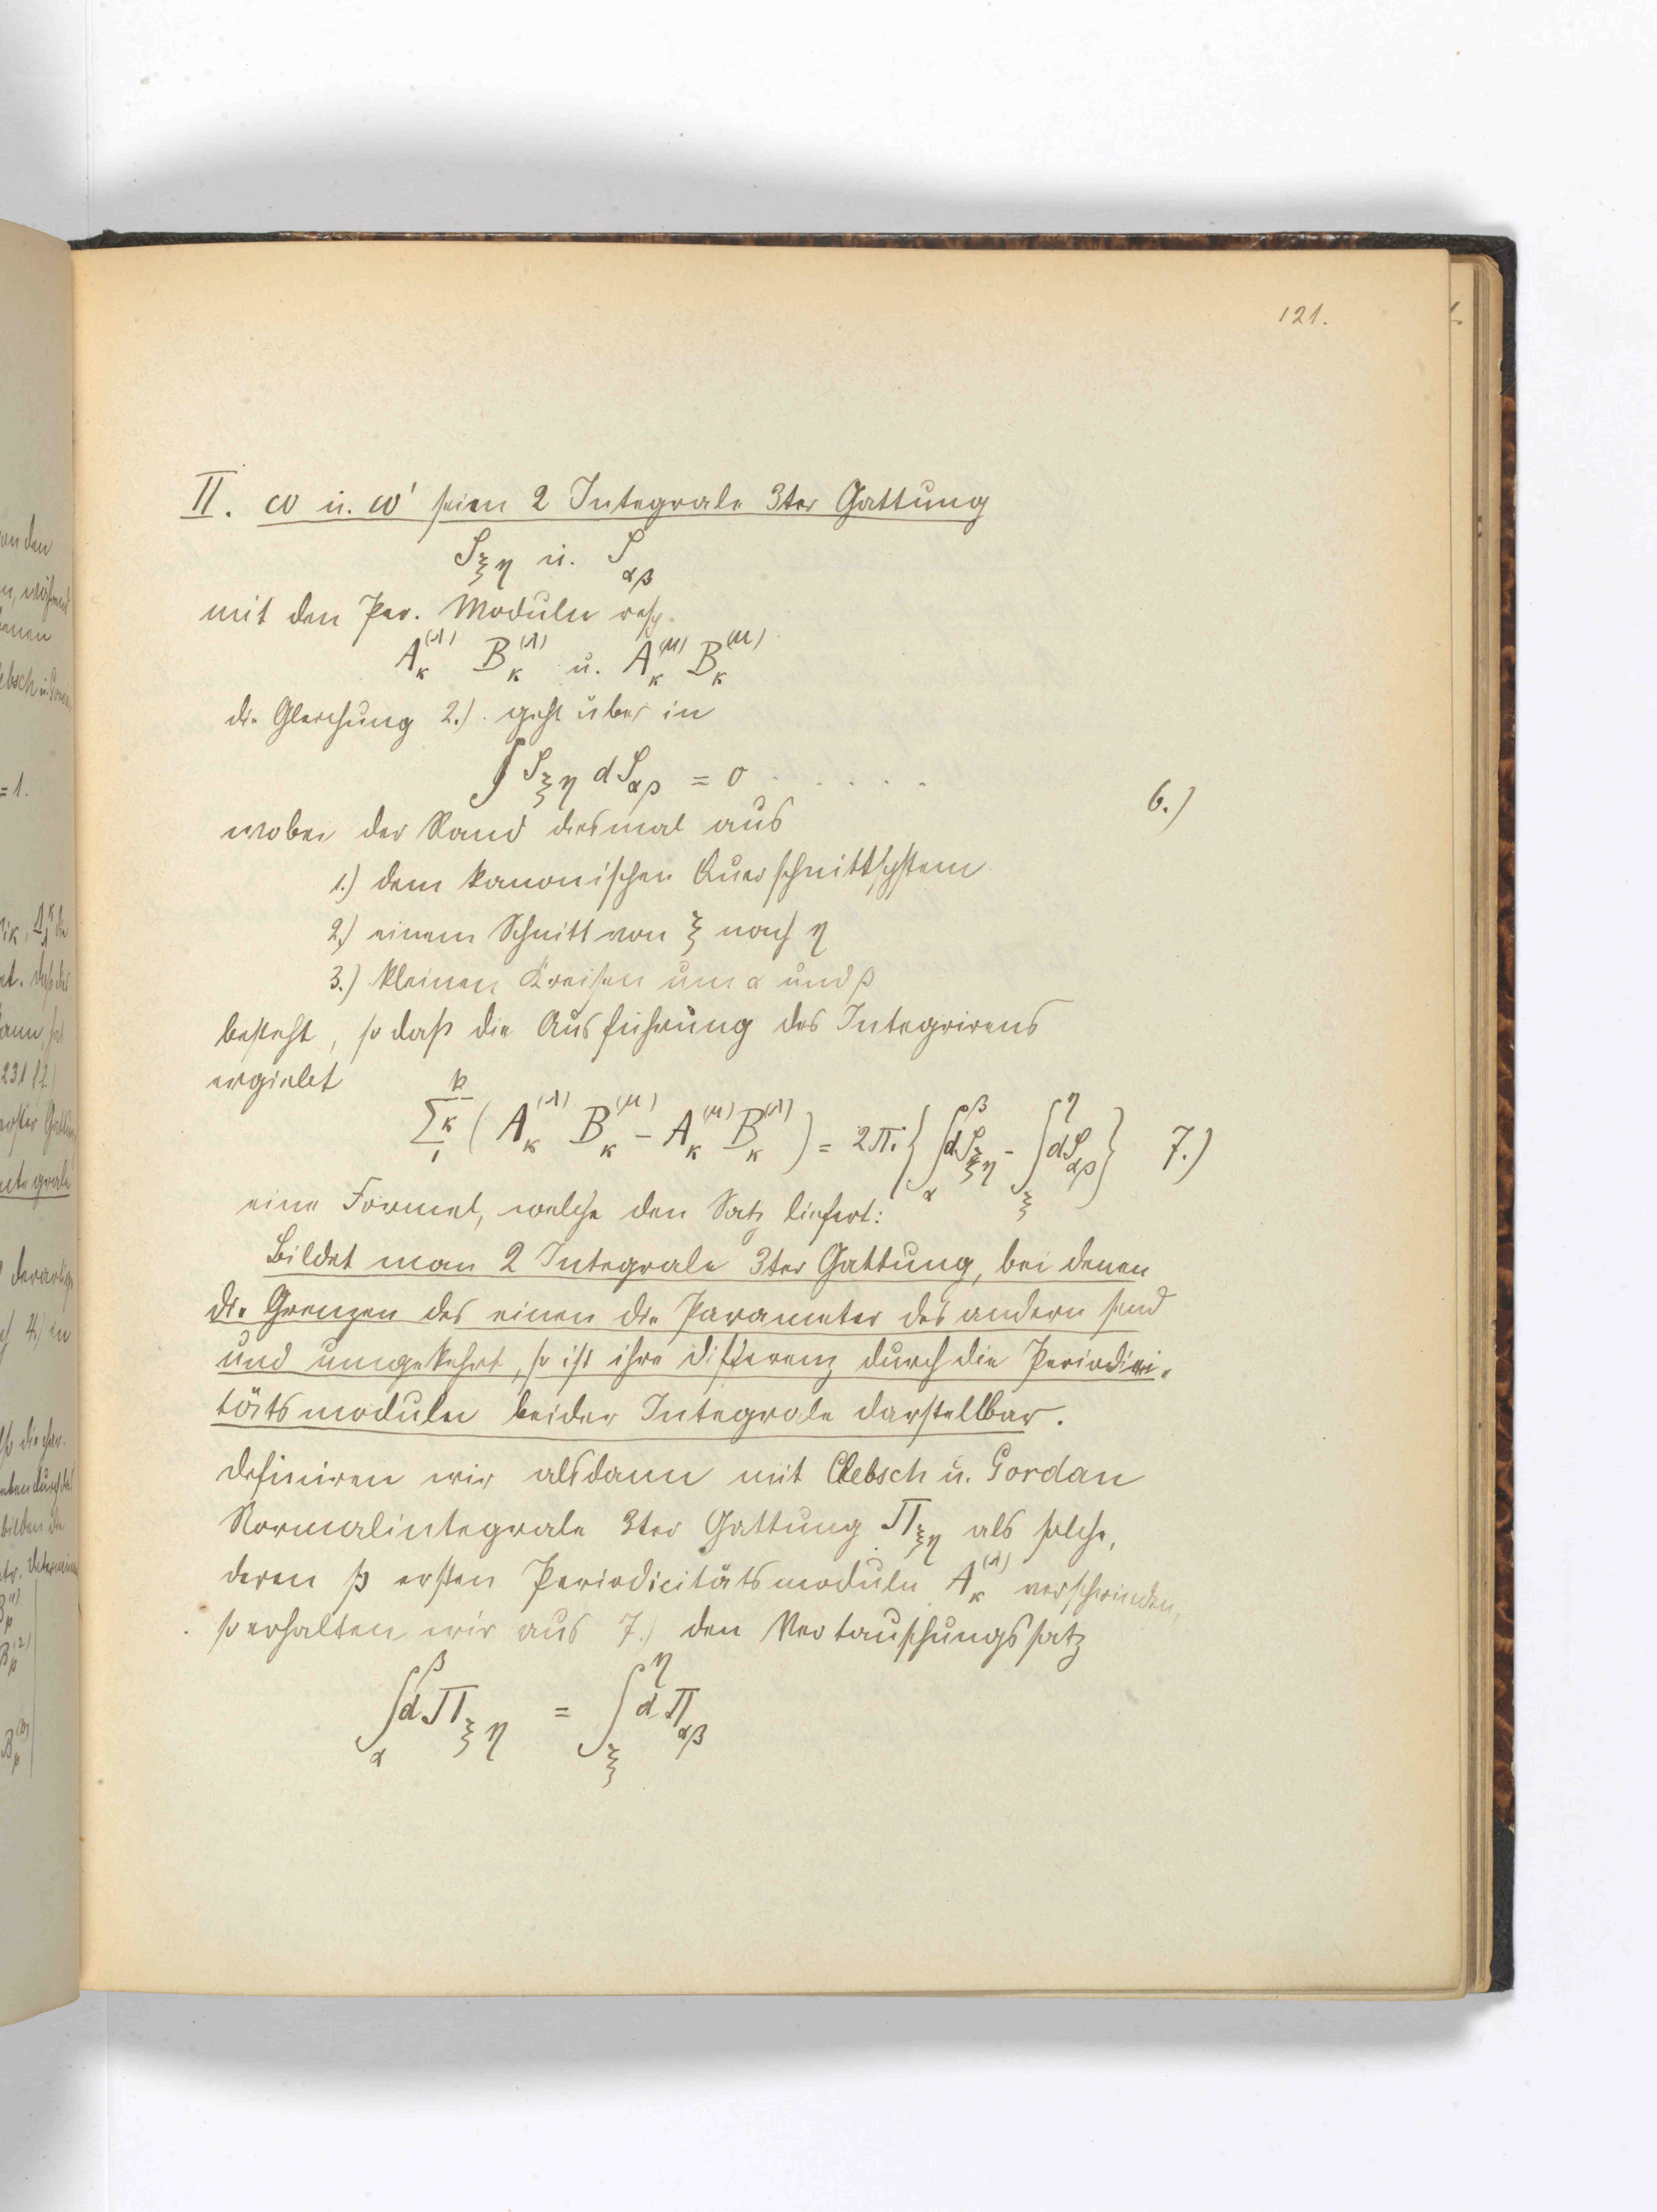 121.
II. w u. w' seien 2 Integrale 3ter Gattung
S_{ξη} u. S_{αβ}
mit den Per. Moduln resp.
A_κ^{(λ)} B_κ^{(λ)} u. A_κ^{(μ)} B_κ^{(μ)}
die Gleichung 2.) geht über in
∫ S_{ξη} dS_{αβ} = 0 . . . . . 6.)
wobei der Rand diesmal aus
1.) dem kanonischen Querschnittsystem
2.) einem Schnitt von ξ nach η
3.) kleinen Kreisen um α und β
besteht, so daß die Ausführung des Integrirens
ergiebt
Σ_1^p κ (A_κ^{(λ)} B_κ^{(μ)} – A_κ^{(μ)} B_κ^{(λ)}) = 2πi {∫_α^β dS_{ξη} – ∫_ξ^η dS_{αβ}} 7.)
eine Formel, welche den Satz liefert:
Bildet man 2 Integrale 3ter Gattung, bei denen
die Grenzen des einen die Parameter des andern sind
und umgekehrt, so ist ihre Differenz durch die Periodici-
tätsmoduln beider Integrale darstellbar.
Definiren wir alsdann mit Clebsch u. Gordan
Normalintegrale 3ter Gattung Π_{ξη} als solche,
deren p ersten Periodicitätsmoduln A_κ^{(λ)} verschwinden,
so erhalten wir aus 7.) den Vertauschungssatz
∫_α^β dΠ_{ξη} = ∫_ξ^η dΠ_{αβ}